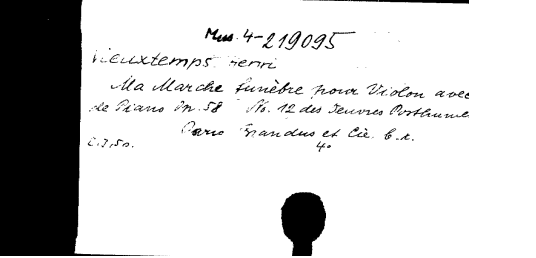 Mus. 4-219095
Vieuxtemps Henri
Ma Marche funèbre pour Violon avec
de Piano Op. 58 No. 12 des Oeuvres Posthumes
Paris Brandus et Cie
4°